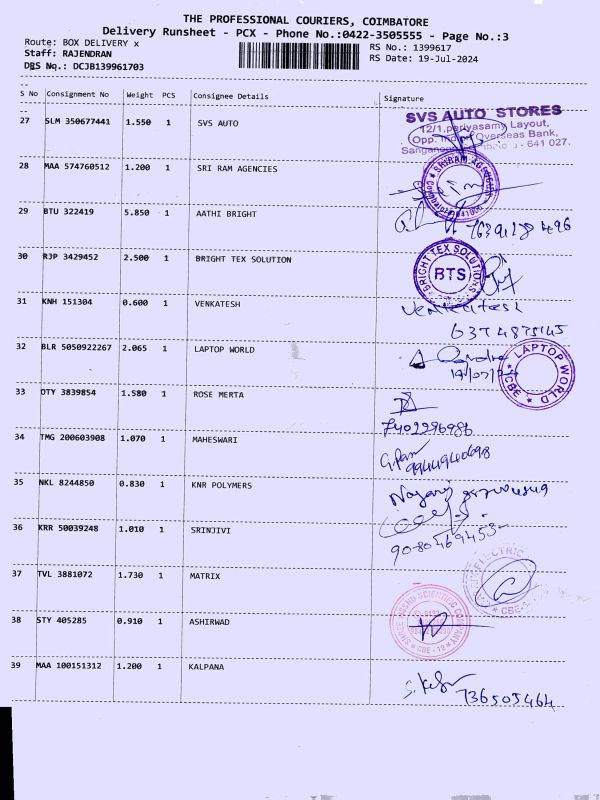 THE PROFESSIONAL COURIERS, COIMBATORE
Delivery Runsheet - PCX - Phone No.:0422-3505555 - Page No.:3
Route: BOX DELIVERY x
RS No.: 1399617
Staff: RAJENDRAN
RS Date: 19-Jul-2024
DRS No.: DCJB139961703
S No Consignment No Weight PCS Consignee Details Signature
27 SLM 350677441 1.550 1 SVS AUTO
SVS AUTO STORES
12/1, periyasamy Layout,
Opp. Indian Overseas Bank,
641 027.
28 MAA 574760512 1.200 1 SRI RAM AGENCIES
SRI RAM AGENCIES
29 BTU 322419 5.850 1 AATHI BRIGHT
30 RJP 3429452 2.500 1 BRIGHT TEX SOLUTION
BRIGHT TEX SOLUTIONS
BTS
31 KNH 151304 0.600 1 VENKATESH
Venkatesh
32 BLR 5050922267 2.065 1 LAPTOP WORLD
LAPTOP WORLD
CBE
33 OTY 3839854 1.580 1 ROSE MERTA
7402296986
34 TMG 200603908 1.070 1 MAHESWARI
35 NKL 8244850 0.830 1 KNR POLYMERS
36 KRR 50039248 1.010 1 SRINJIVI
9080469453
37 TVL 3881072 1.730 1 MATRIX
ELECTRIC
CBE
38 STY 405285 0.910 1 ASHIRWAD
SCIENTIFIC COMPANY
CBE - 12
39 MAA 100151312 1.200 1 KALPANA
736505464